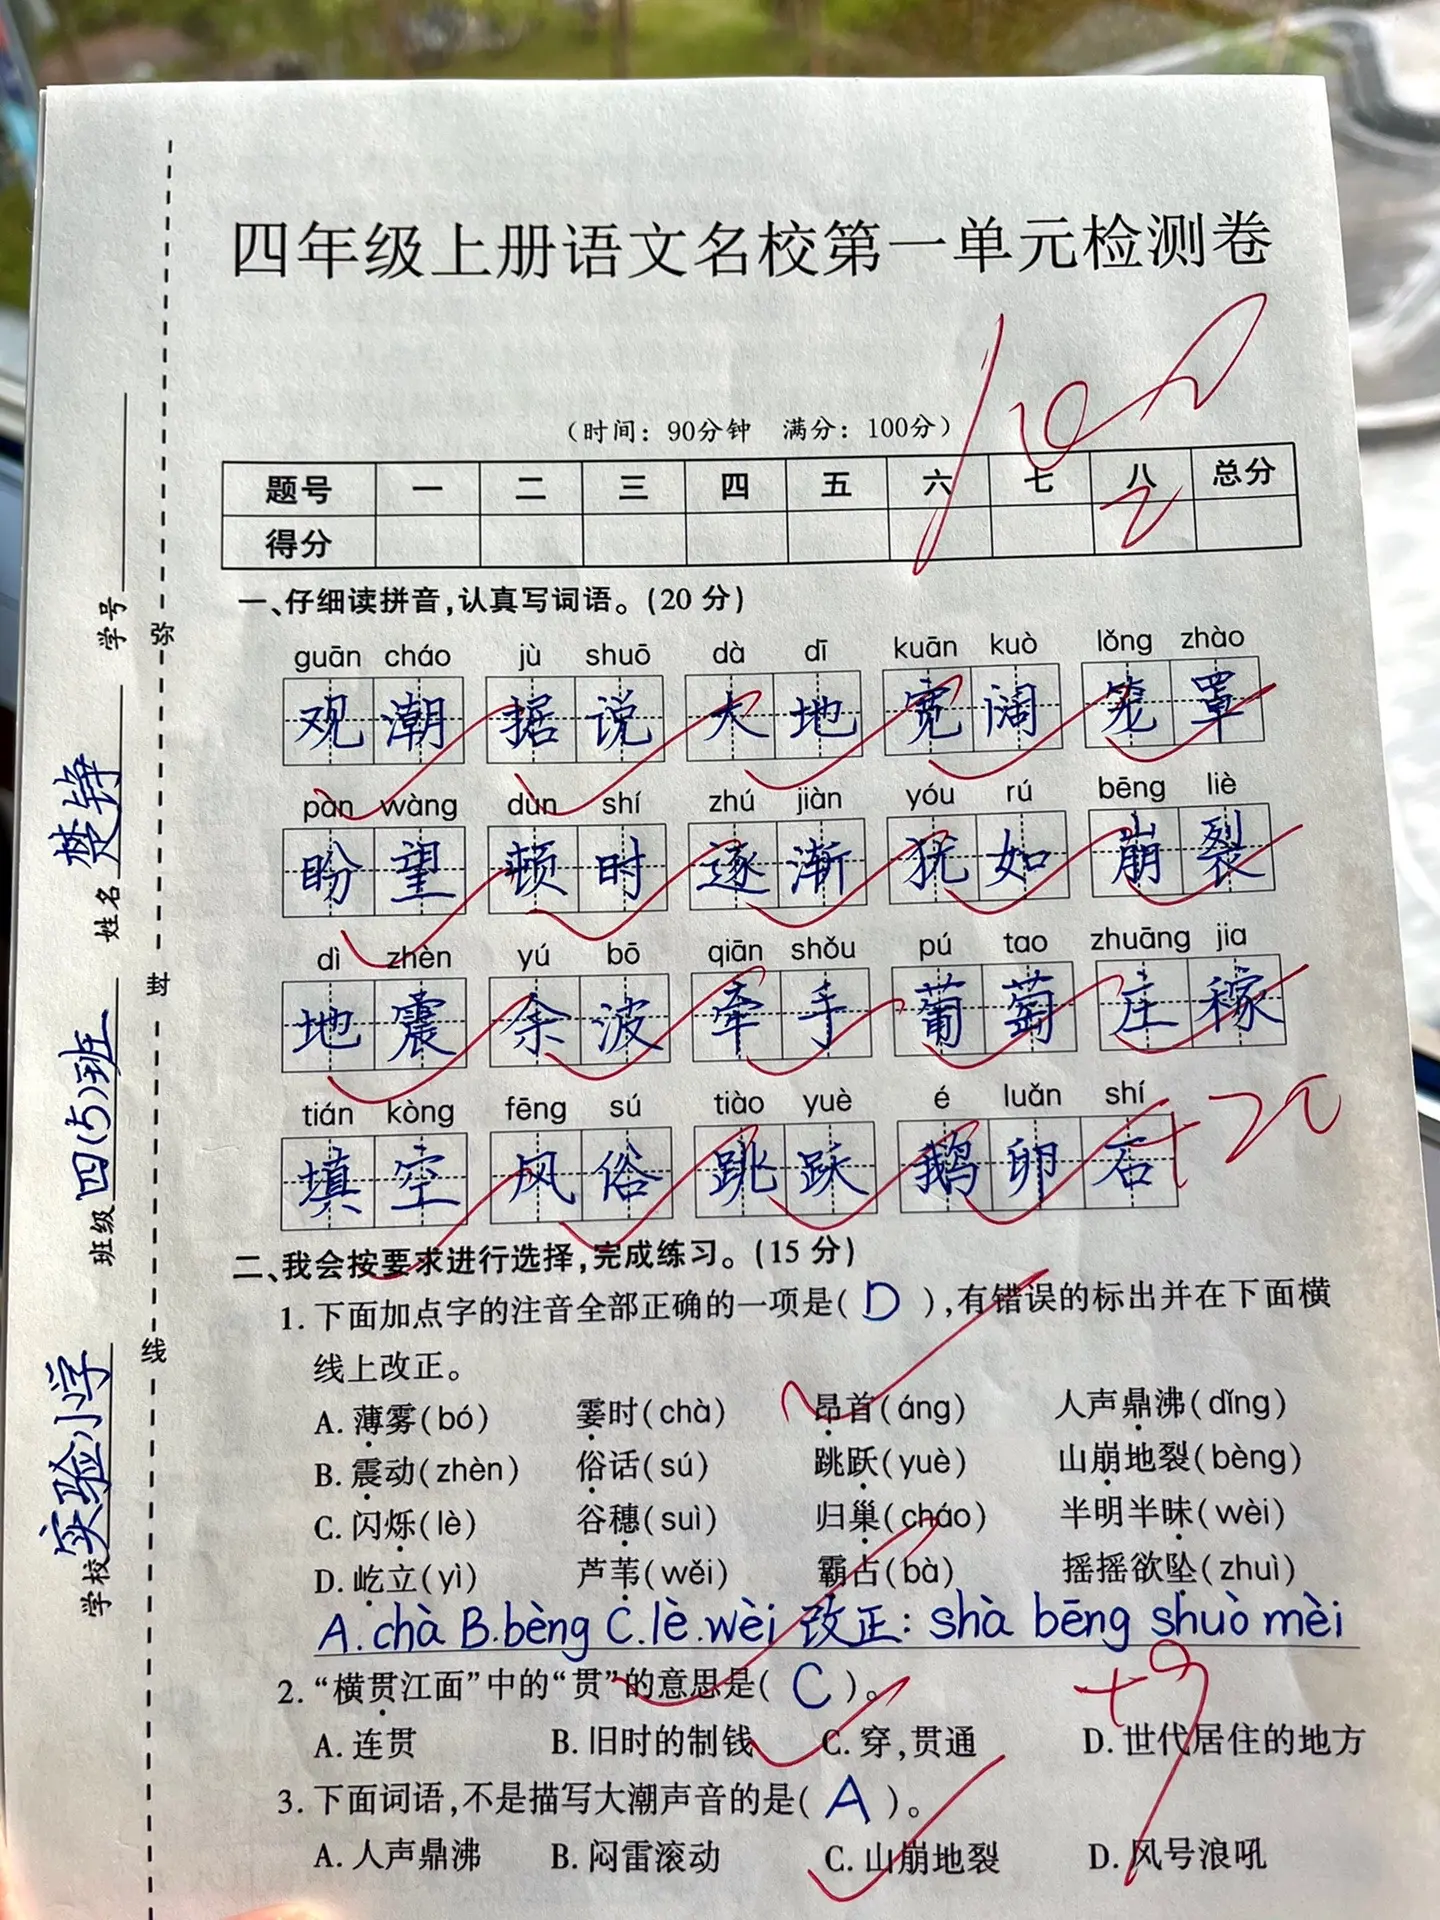 四年级上册语文名校第一单元检测卷
100
2
(时间：90分钟 满分：100分)
题号 一 二 三 四 五 六 七 八 总分
得分
一、仔细读拼音,认真写词语。(20 分)
guān cháo jù shuō dà dī kuān kuò lǒng zhào
观潮 据说 大地 宽阔 笼罩
pàn wàng dùn shí zhú jiàn yóu rú bēng liè
盼望 顿时 逐渐 犹如 崩裂
dì zhèn yú bō qiān shǒu pú tao zhuāng jia
地震 余波 牵手 葡萄 庄稼
tián kòng fēng sú tiào yuè é luǎn shí
填空 风俗 跳跃 鹅卵石
+20
二、我会按要求进行选择,完成练习。(15 分)
1. 下面加点字的注音全部正确的一项是( D ),有错误的标出并在下面横
线上改正。
A. 薄雾(bó) 霎时(chà) 昂首(áng) 人声鼎沸(dǐng)
B. 震动(zhèn) 俗话(sú) 跳跃(yuè) 山崩地裂(bèng)
C. 闪烁(lè) 谷穗(suì) 归巢(cháo) 半明半昧(wèi)
D. 屹立(yì) 芦苇(wěi) 霸占(bà) 摇摇欲坠(zhuì)
A.chà B.bèng C.lè.wèi 改正：shà bēng shuò mèi
2. “横贯江面”中的“贯”的意思是( C )。
+9
A. 连贯 B. 旧时的制钱 C. 穿,贯通 D. 世代居住的地方
3. 下面词语,不是描写大潮声音的是( A )。
A. 人声鼎沸 B. 闷雷滚动 C. 山崩地裂 D. 风号浪吼
学校 实验小学 班级 四(5)班 姓名 楚铮 学号
弥 封 线